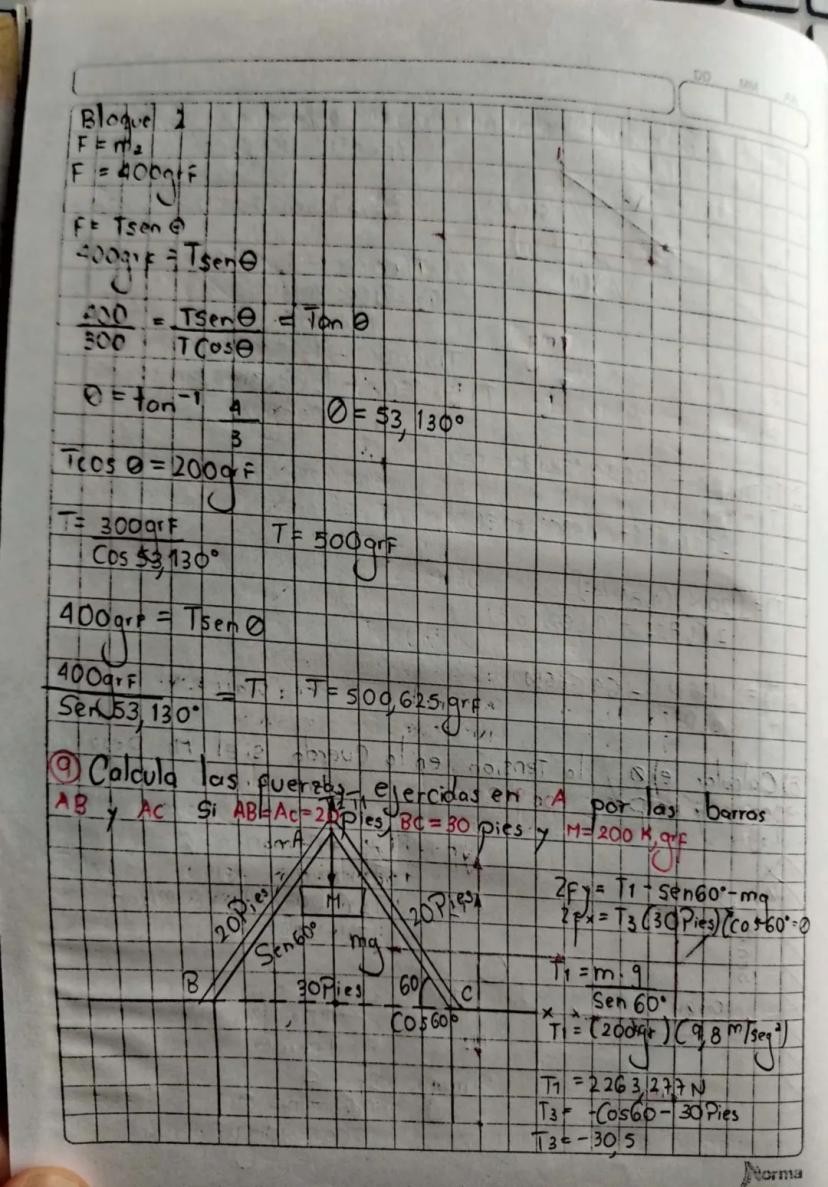 DD MM AA
Bloque 2
F = m₂
F = 400grF
F = Tsen θ
400grF = Tsenθ
400/300 = Tsenθ/TCosθ = Tan θ
θ = tan⁻¹ 4/3 θ = 53,130°
Tcos θ = 200grF
T = 300grF/Cos 53,130° T = 500grF
400grF = Tsenθ
400grF/Sen 53,130° = T : T = 500,625.grF
⑨ Calcula las fuerzas ejercidas en A por las barras
AB y AC Si AB=AC=20 pies, BC=30 pies y M=200 K.grF
T1
A
M
20Pies
20Pies
Sen60°
mg
B
30Pies
60
C
Cos60°
x
Σfy = T1 - sen60° - mg
Σfx = T3 (30Pies) (cos60°=0
T1 = m.g/Sen 60°
T1 = (200gr) (9,8 m/seg²)
T1 = 2263,277N
T3 = -Cos60 - 30Pies
T3 = -30,5
Norma